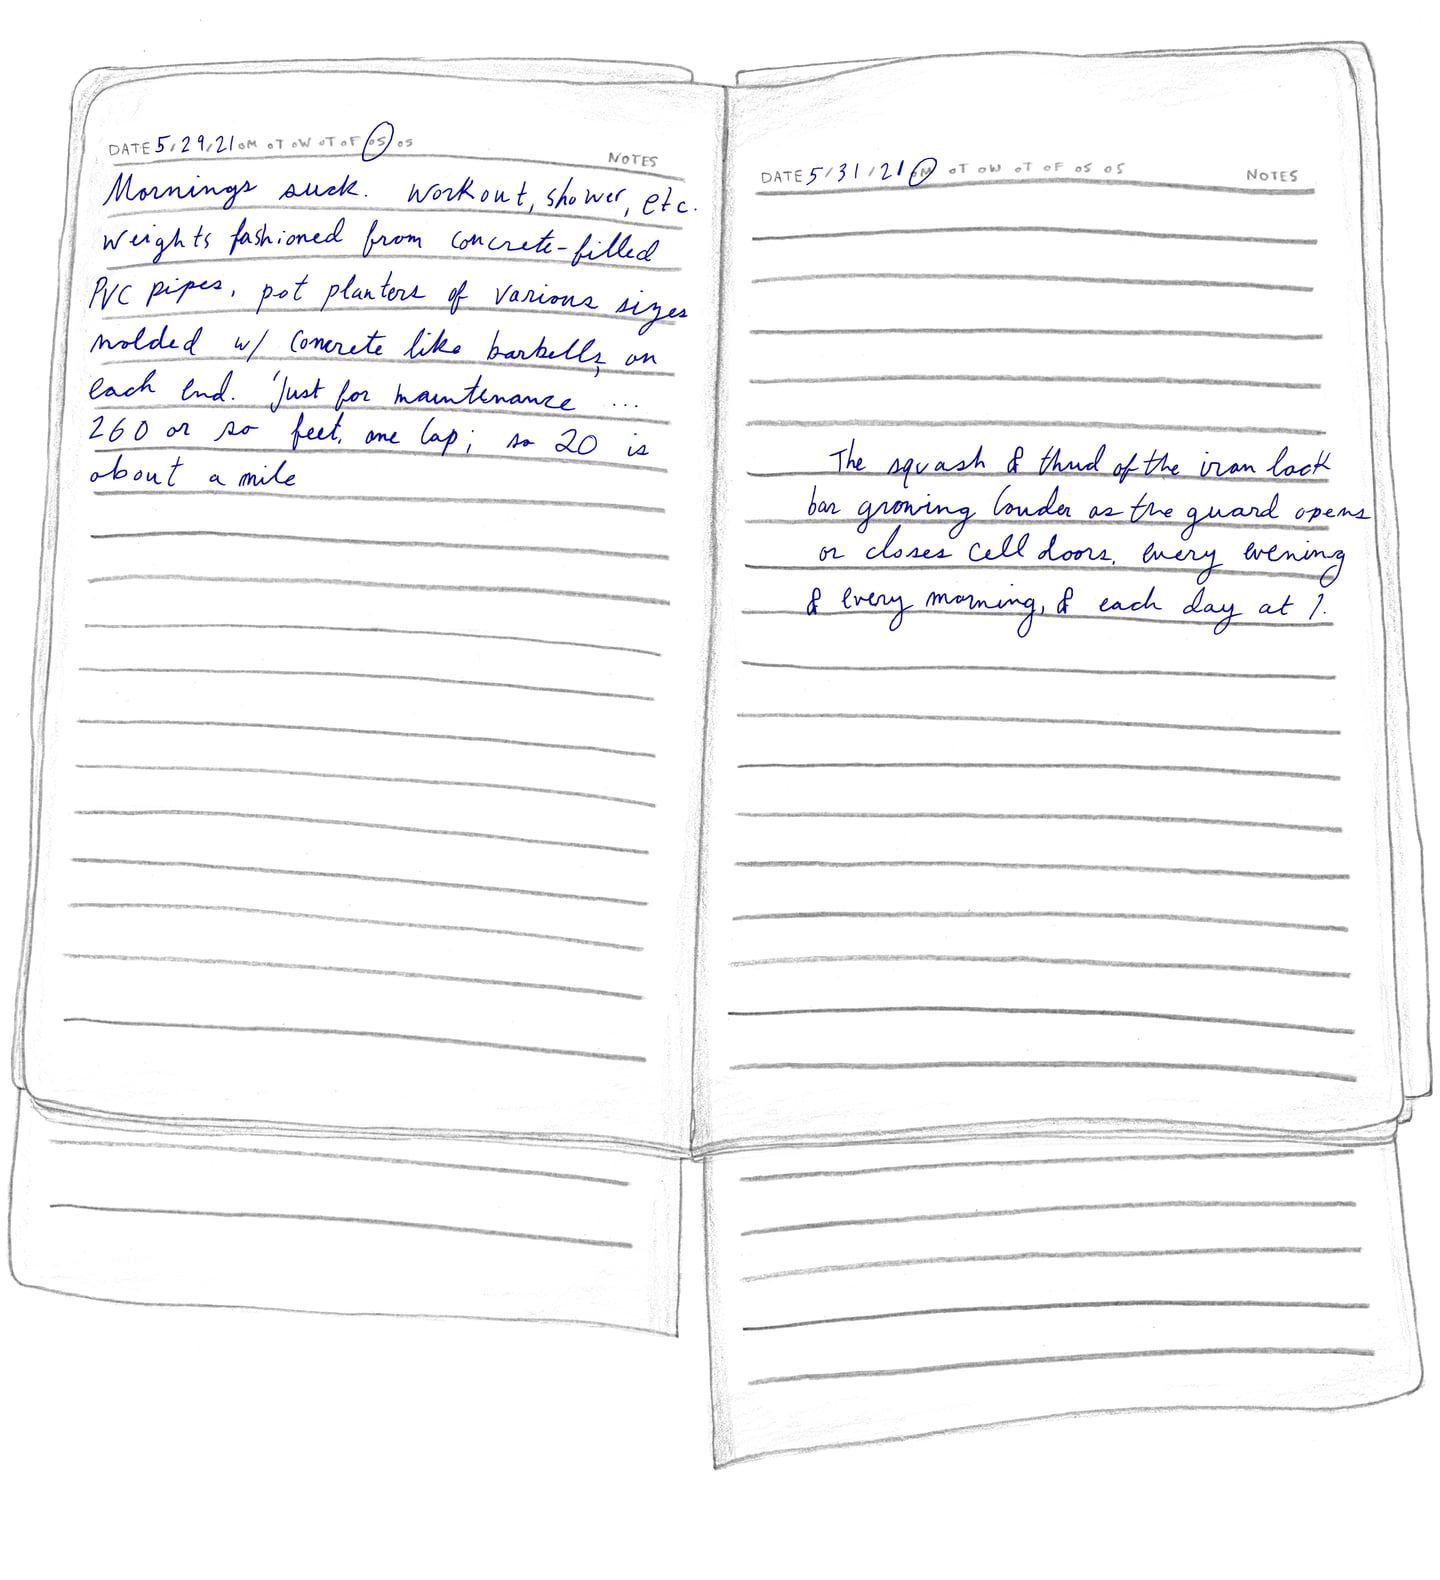 DATE 5/29/21 oM oT oW oT oF oS oS
NOTES
Mornings suck. Workout, shower, etc.
Weights fashioned from concrete-filled
PVC pipes, pot planters of various sizes
molded w/ concrete like barbells, on
each end. 'Just for maintenance ...
260 or so feet, one lap; so 20 is
about a mile
DATE 5/31/21 oM oT oW oT oF oS oS
NOTES
The squash & thud of the iron lock
bar growing louder as the guard opens
or closes cell doors, every evening
& every morning, & each day at 1.